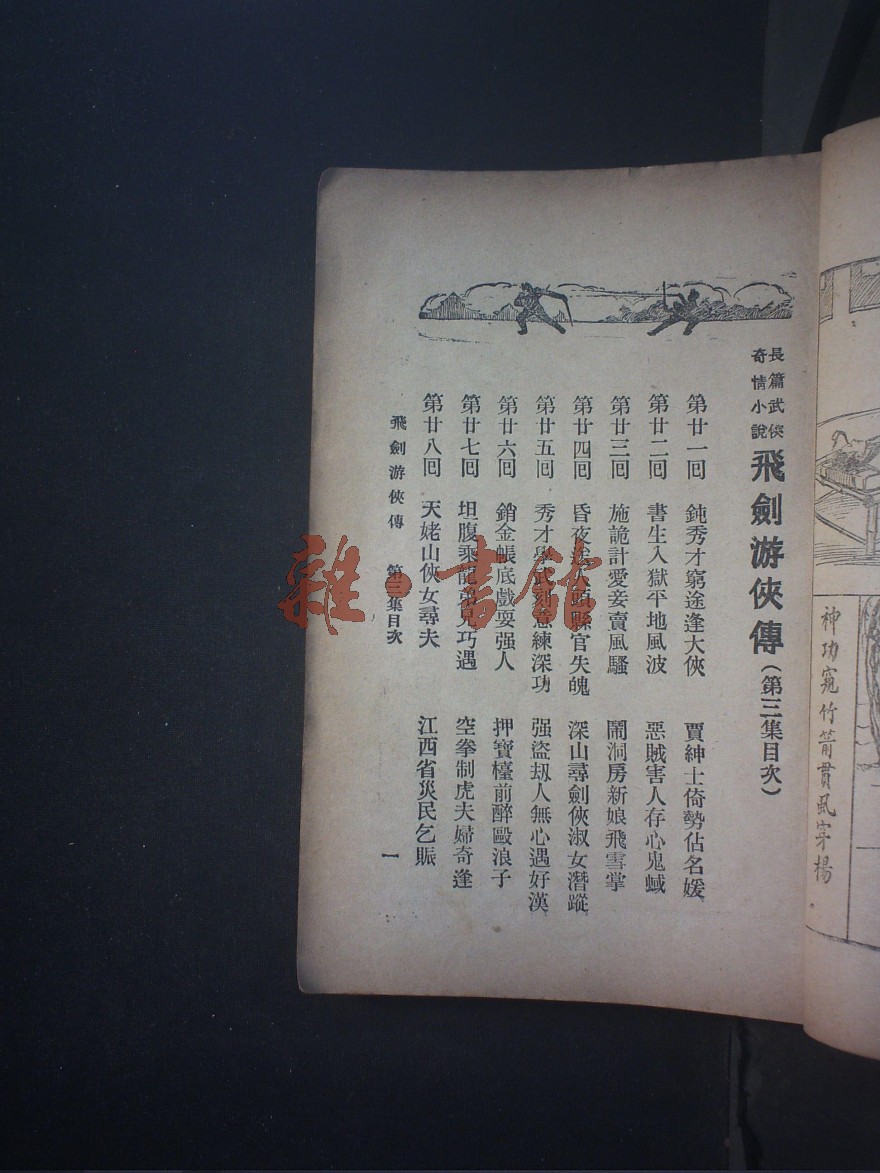 長篇武俠
奇情小說
飛劍游俠傳(第三集目次)
第廿一回 鈍秀才窮途逢大俠 賈紳士倚勢佔名媛
第廿二回 書生入獄平地風波 惡賊害人存心鬼蜮
第廿三回 施詭計愛妾賣風騷 鬧洞房新娘飛雪掌
第廿四回 昏夜送人頭縣官失魄 深山尋劍俠淑女潛蹤
第廿五回 秀才學武刻意練深功 强盜刼人無心遇好漢
第廿六回 銷金帳底戲耍强人 押寶檯前醉毆浪子
第廿七回 坦腹乘龍弟兄巧遇 空拳制虎夫婦奇逢
第廿八回 天姥山俠女尋夫 江西省災民乞賑
飛劍游俠傳 第三集目次 一
神功寃竹箭貫虱穿楊
雜·書館